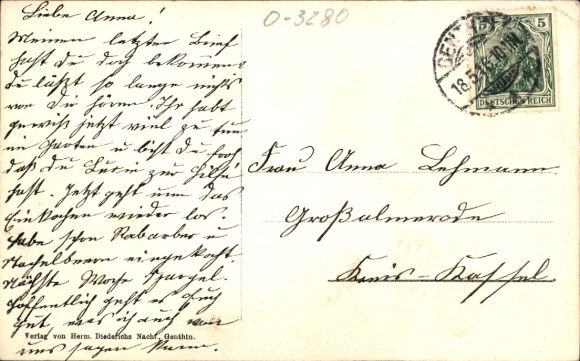 Liebe Anna!
Meinen letzten Brief
hast Du doch bekommen.
Du läßt so lange nichts
von Dir hören. Ihr habt
gewiß jetzt viel zu tun
im Garten u. bist Du froh
daß Du zur Hilfe
hast. Jetzt geht nun das
Einkochen wieder los.
Habe schon Rabarber u
Stachelbeeren eingekocht
nächste Woche Spargel.
Hoffentlich geht es Euch
gut, was ich auch von
uns sagen kann.
Verlag von Herm. Diederichs Nachf., Genthin.
0-3280
GEN
18.5.
5
DEUTSCHES REICH
Frau Anna Lehmann
Großalmerode
Kreis-Kassel